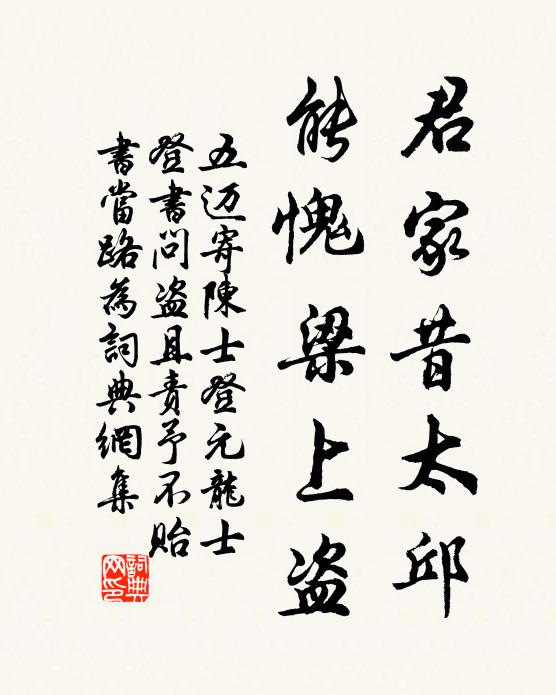 君家昔太邱
能愧梁上盗
五迈寄陳士登元龍士
登書問盗且責予不貽
書當路為詞典網集
詞典网印